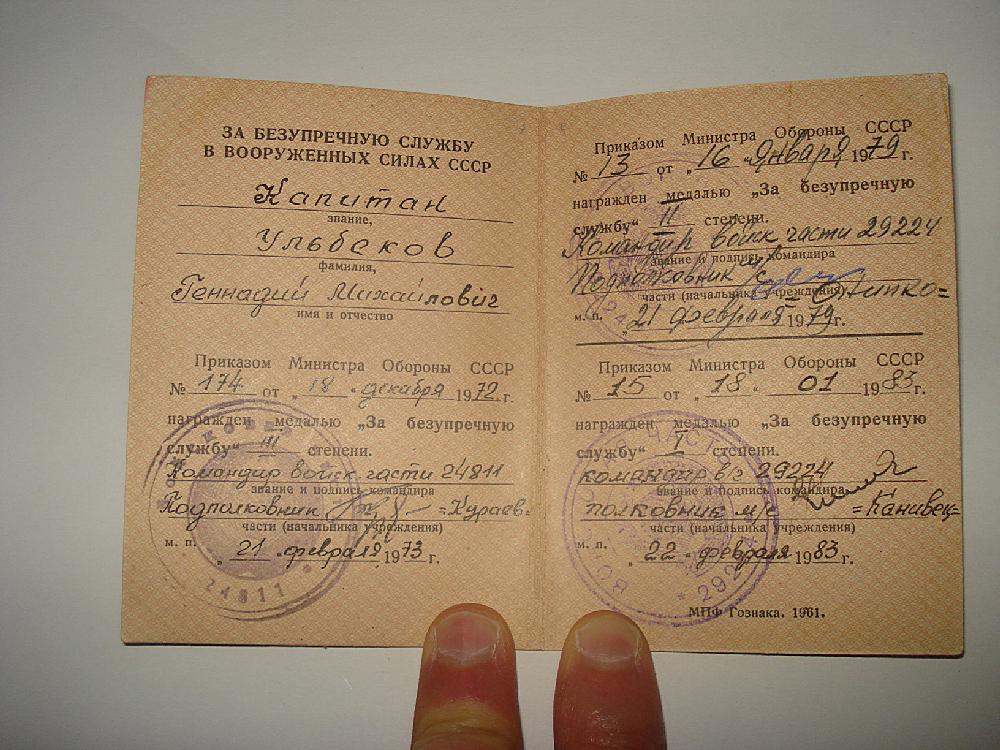 ЗА БЕЗУПРЕЧНУЮ СЛУЖБУ
В ВООРУЖЕННЫХ СИЛАХ СССР
Капитан
звание,
Ульбеков
фамилия,
Геннадий Михайлович
имя и отчество
Приказом Министра Обороны СССР
№ 174 от „18" декабря 1972 г.
награжден медалью „За безупречную
службу" III степени.
Командир войск части 24811
звание и подпись командира
Подполковник =Кураев=
части (начальника учреждения)
м. п.
„21" февраля 1973 г.
24811
Приказом Министра Обороны СССР
№ 13 от „16" Января 1979 г.
награжден медалью „За безупречную
службу" II степени.
Командир войск части 29224
звание и подпись командира
Подполковник
части (начальника учреждения)
м. п.
„21" февраля 1979 г.
Приказом Министра Обороны СССР
№ 15 от „18" 01 1983 г.
награжден медалью „За безупречную
службу" I степени.
командир в/ч 29224
звание и подпись командира
полковник м/с =Канивец=
части (начальника учреждения)
м. п.
„22" февраля 1983 г.
МПФ Гознака. 1961.